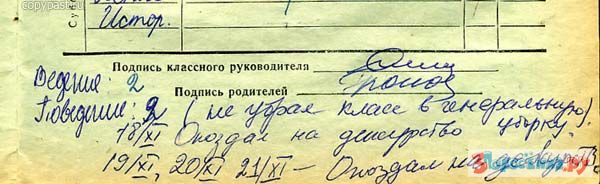 copypast.ru
Истор.
Подпись классного руководителя
Ведение: 2
Подпись родителей
Поведение: 2 (не убрал класс в генеральную
уборку).
18/XI Опоздал на дежурство
19/XI, 20/XI 21/XI – Опоздал на